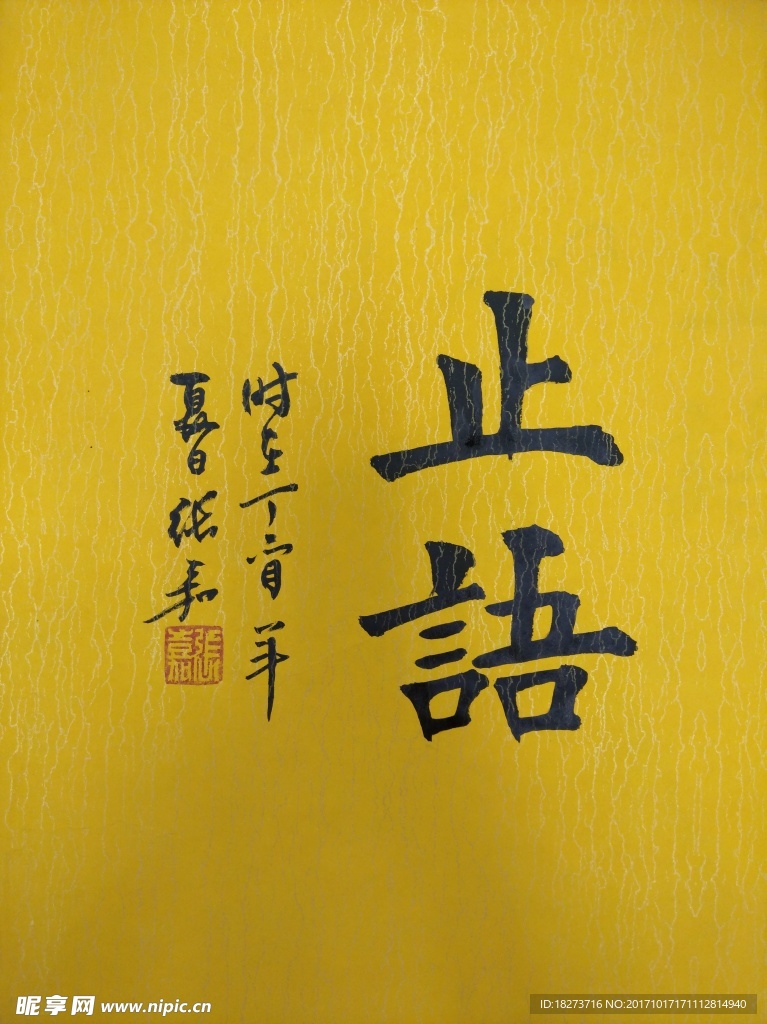 止語
时在丁酉年
夏日张嘉
張嘉
昵享网 www.nipic.cn
ID:18273716 NO:20171017171112814940